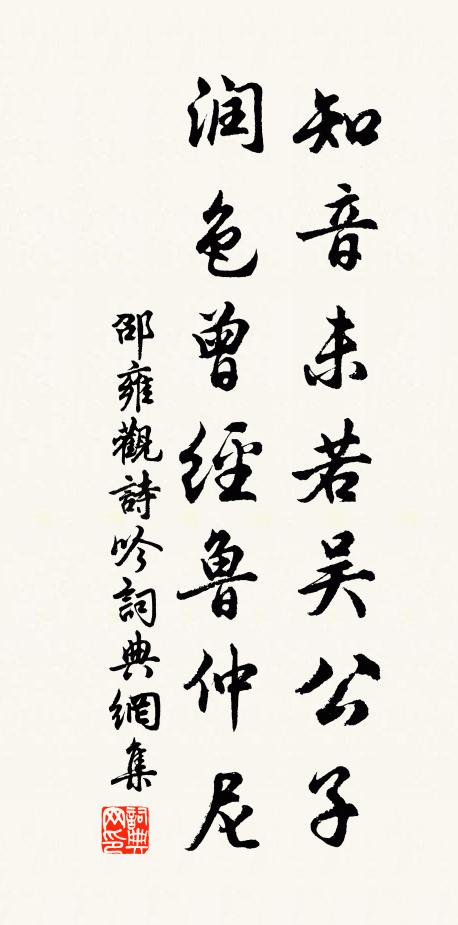 知音未若吴公子
润色曾經魯仲尼
邵雍觀詩吟詞典網集
詞典网印